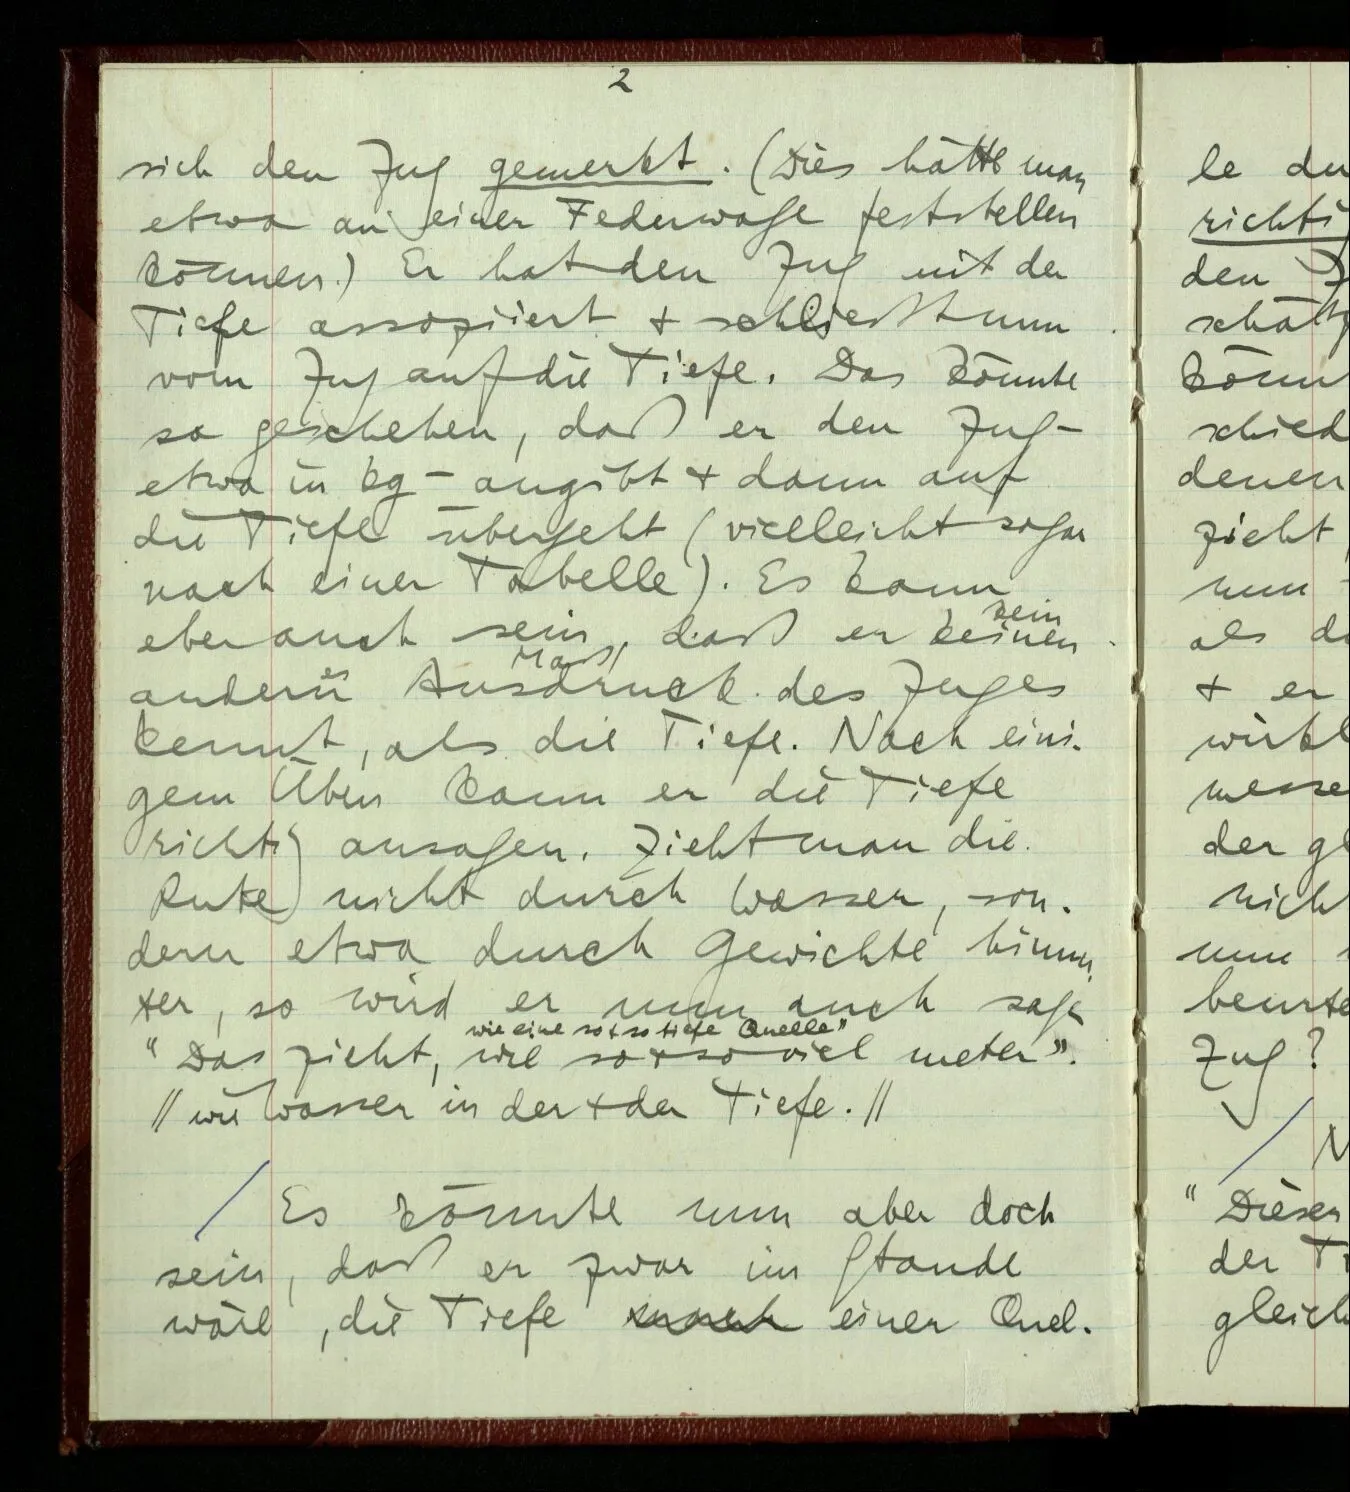 2
sich den Zug gemerkt. (Dies hätte man
etwa an einer Federwage feststellen
können.) Er hat den Zug mit der
Tiefe assoziiert + schließt nun
vom Zug auf die Tiefe. Das könnte
so geschehen, daß er den Zug –
etwa in kg – angibt + dann auf
die Tiefe übergeht (vielleicht sogar
nach einer Tabelle). Es kann
aber auch sein, daß er keinen
kein
Maß
andern Ausdruck des Zuges
kennt, als die Tiefe. Nach eini-
gem Üben kann er die Tiefe
richtig ansagen. Zieht man die
Rute nicht durch Wasser, son-
dern etwa durch Gewichte hinun-
ter, so wird er nun auch sagen
wie eine so + so tiefe Quelle"
"Das zieht, wie so + so viel meter".
// wie Wasser in der + der Tiefe. //
/ Es könnte nun aber doch
sein, daß er zwar im Stande
wäre, die Tiefe einer Quel-
le
richti
den Z
schätz
könn
schied
denen
zieht,
nun
als di
+ er
wirkl
messe
der gl
nich
nun
beurte
Zug?
/ N
"Dieser
der Ti
gleich